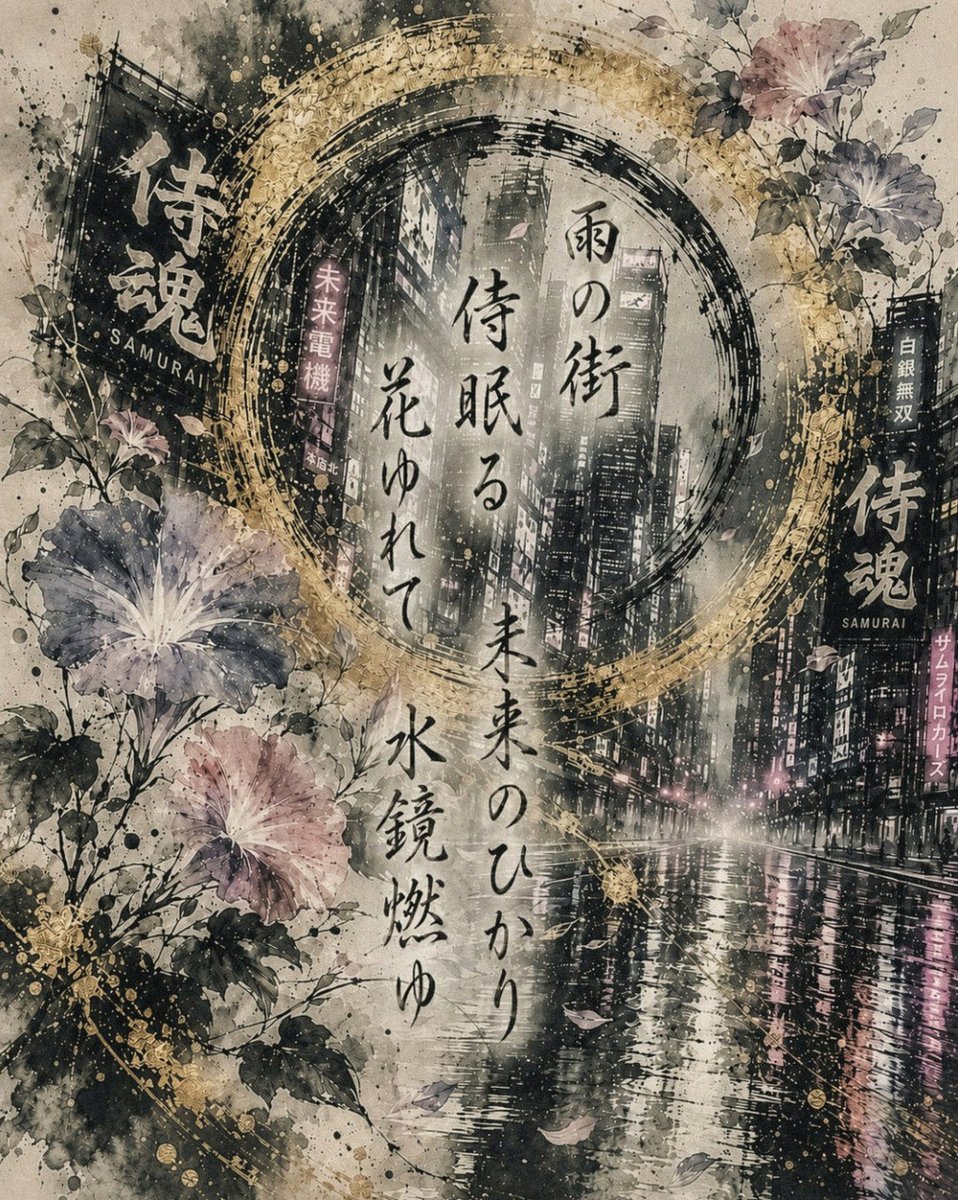 雨の街
侍眠る 未来のひかり
花ゆれて 水鏡燃ゆ
侍魂
SAMURAI
未来電機
本店北
白銀無双
侍魂
SAMURAI
サムライロカーズ